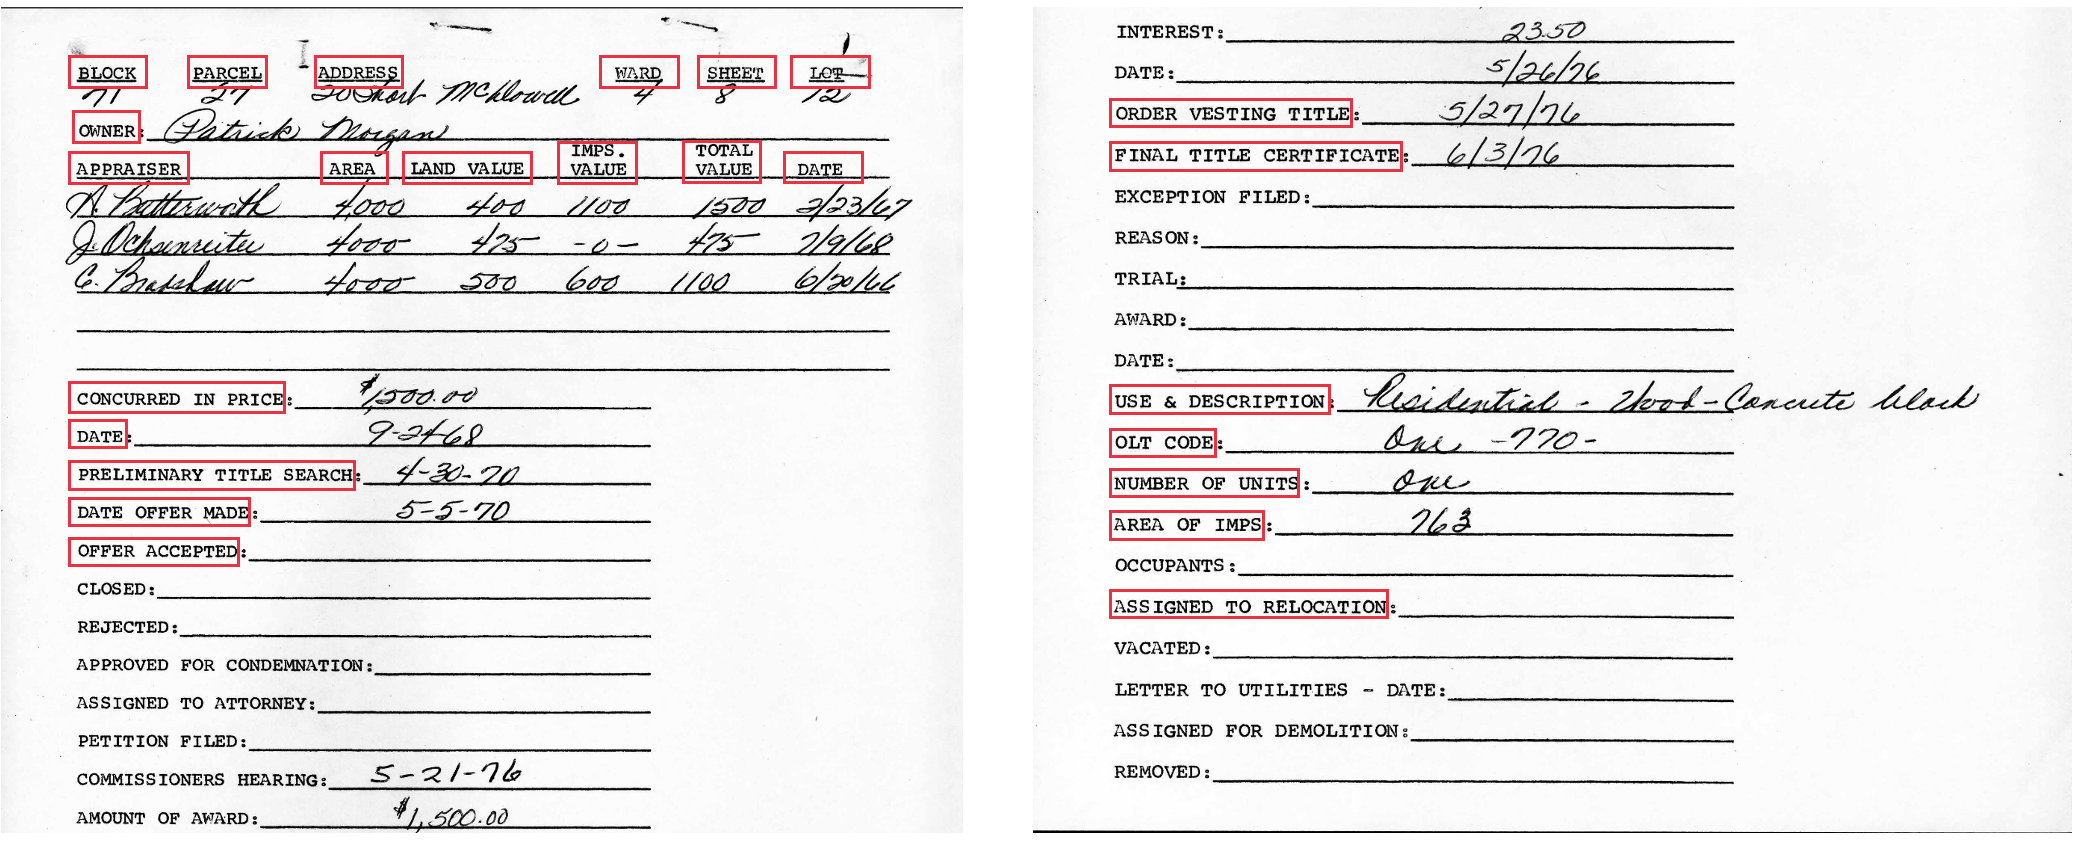 BLOCK PARCEL ADDRESS WARD SHEET LOT
71 27 20 Short McDowell 4 8 12
OWNER: Patrick Morgan
APPRAISER AREA LAND VALUE IMPS. VALUE TOTAL VALUE DATE
A. Butterworth 4,000 400 1100 1500 2/23/67
J. Ochsenreiter 4000 475 -0- 475 7/9/68
C. Bradshaw 4000 500 600 1100 6/20/66
CONCURRED IN PRICE: $1,500.00
DATE: 9-24-68
PRELIMINARY TITLE SEARCH: 4-30-70
DATE OFFER MADE: 5-5-70
OFFER ACCEPTED:
CLOSED:
REJECTED:
APPROVED FOR CONDEMNATION:
ASSIGNED TO ATTORNEY:
PETITION FILED:
COMMISSIONERS HEARING: 5-21-76
AMOUNT OF AWARD: $1,500.00
INTEREST: 23.50
DATE: 5/26/76
ORDER VESTING TITLE: 5/27/76
FINAL TITLE CERTIFICATE: 6/3/76
EXCEPTION FILED:
REASON:
TRIAL:
AWARD:
DATE:
USE & DESCRIPTION: Residential - Wood - Concrete block
OLT CODE: One -770-
NUMBER OF UNITS: One
AREA OF IMPS: 763
OCCUPANTS:
ASSIGNED TO RELOCATION:
VACATED:
LETTER TO UTILITIES - DATE:
ASSIGNED FOR DEMOLITION:
REMOVED: